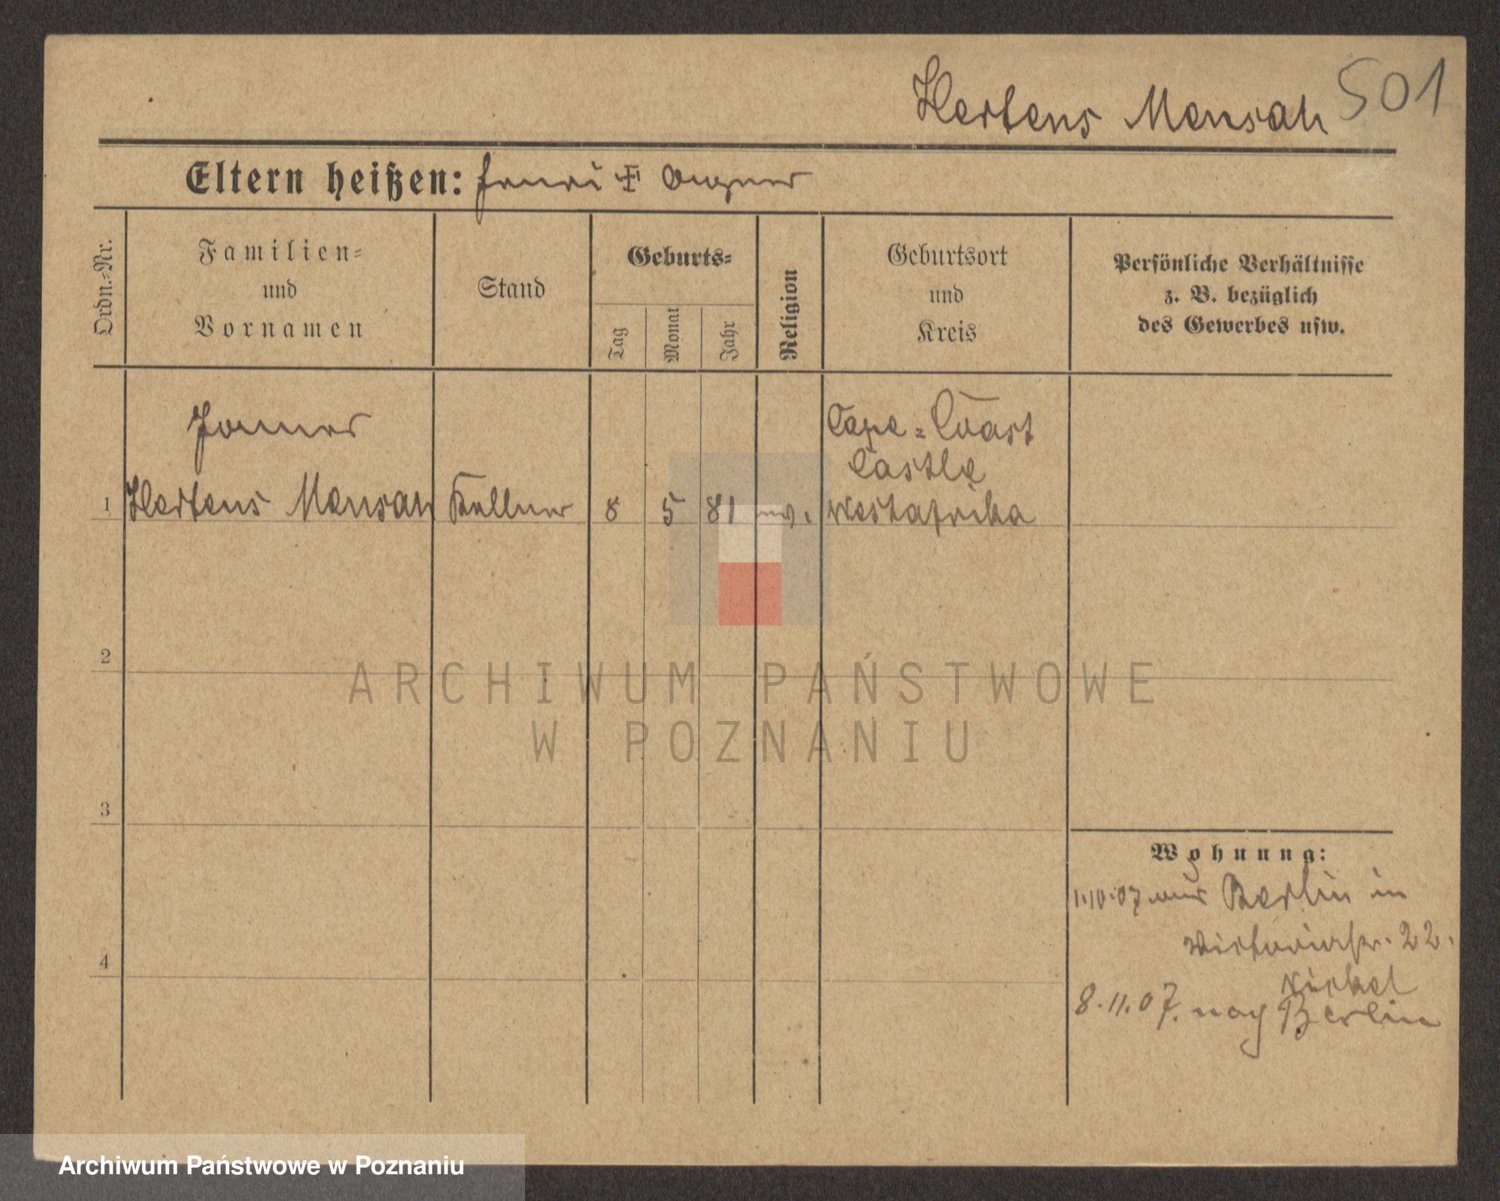 Hertens Mensah 501
Eltern heißen: Henri +
Ordn.=Nr.
Familien=
und
Vornamen
Stand
Geburts=
Tag
Monat
Jahr
Religion
Geburtsort
und
Kreis
Persönliche Verhältnisse
z. B. bezüglich
des Gewerbes usw.
Cape=Coast
Castle
1 Hertens Mensah Kellner 8 5 81 ev. Westafrika
2
ARCHIWUM PAŃSTWOWE
W POZNANIU
3
Wohnung:
1.10.07 aus Berlin in
Victoriastr. 22.
4
8.11.07. nach Berlin
Archiwum Państwowe w Poznaniu